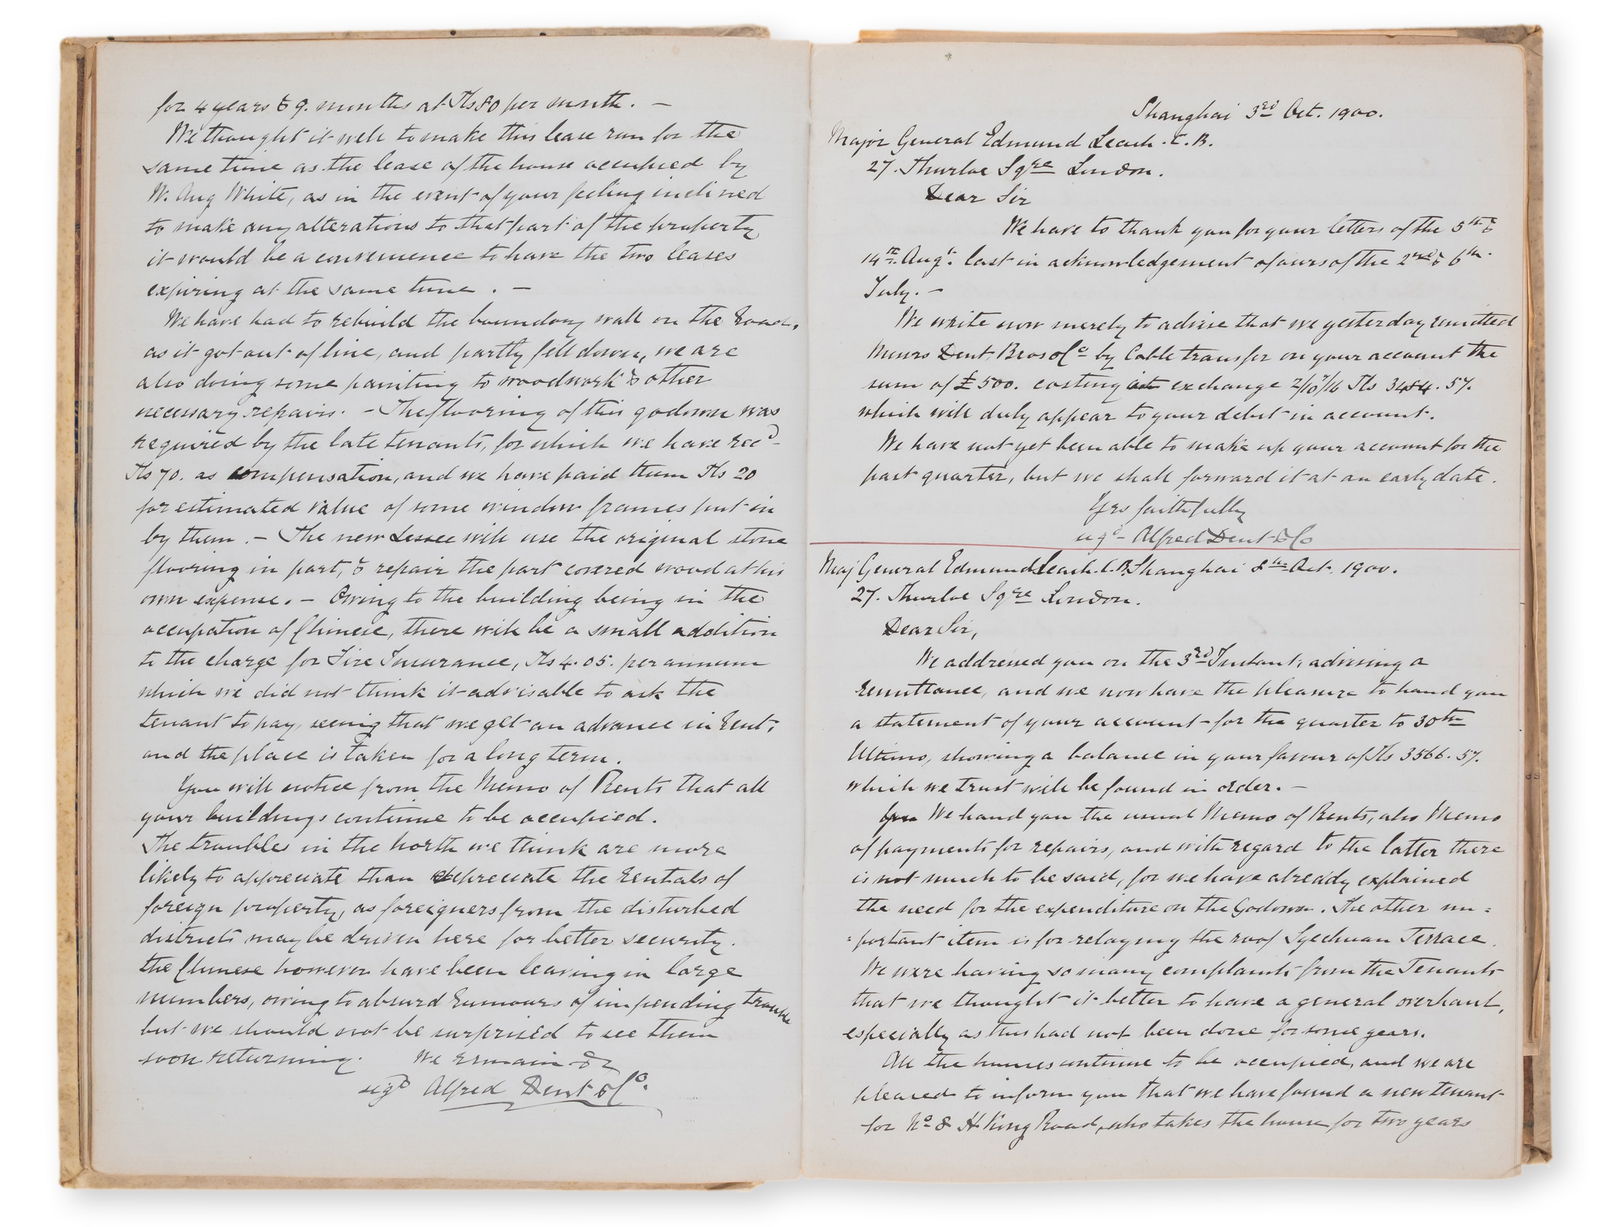 for 4 years & 9. months at Tls 80 per month. —
We thought it well to make this lease run for the
same time as the lease of the house occupied by
W. Aug White, as in the event of your feeling inclined
to make any alterations to that part of the property
it would be a convenience to have the two leases
expiring at the same time . —
We have had to rebuild the boundary wall on the Road,
as it got out of line, and partly fell down, we are
also doing some painting to woodwork & other
necessary repairs. — The flooring of this godown was
required by the late tenants, for which we have recd
Tls 70. as compensation, and we have paid them Tls 20
for estimated value of some window frames put in
by them . — The new Lessee will use the original stone
flooring in part, & repair the part covered wood at his
own expense. — Owing to the building being in the
occupation of Chinese, there will be a small addition
to the charge for Fire Insurance, Tls 4.05. per annum
which we did not think it advisable to ask the
tenant to pay, seeing that we get an advance in Rent,
and the place is taken for a long term.
You will notice from the Memo of Rents that all
your buildings continue to be occupied.
The troubles in the north we think are more
likely to appreciate than depreciate the Rentals of
foreign property, as foreigners from the disturbed
districts may be driven here for better security.
the Chinese however have been leaving in large
numbers, owing to absurd Rumours of impending trouble
but we should not be surprised to see them
soon returning. We Remain &c
sigd Alfred Dent & Co.
Shanghai 3rd Oct. 1900.
Major General Edmund Leach. C.B.
27. Thurloe Sqre London.
Dear Sir
We have to thank you for your letters of the 5th &
14th Augt. last in acknowledgement of ours of the 2nd & 6th
July. —
We write now merely to advise that we yesterday remitted
Messrs Dent Bros & Co by Cable transfer on your account the
sum of £500. costing exchange 2/10 7/16 Tls 3484.57.
which will duly appear to your debit in account.
We have not yet been able to make up your account for the
past quarter, but we shall forward it at an early date.
Yrs faithfully
sigd Alfred Dent & Co
Maj General Edmund Leach. C.B. Shanghai 8th Oct. 1900.
27. Thurloe Sqre London.
Dear Sir,
We addressed you on the 3rd Instant, advising a
Remittance, and we now have the pleasure to hand you
a statement of your account for the quarter to 30th
Ultimo, showing a balance in your favour of Tls 3566.57.
which we trust will be found in order. —
We hand you the usual Memo of Rents, also Memo
of payments for repairs, and with regard to the latter there
is not much to be said, for we have already explained
the need for the expenditure on the Godown. The other im=
=portant item is for relaying the roof Szechuan Terrace.
We were having so many complaints from the Tenants
that we thought it better to have a general overhaul,
especially as this had not been done for some years.
All the houses continue to be occupied, and we are
pleased to inform you that we have found a new tenant
for No 8 H King Road, who takes the house for two years